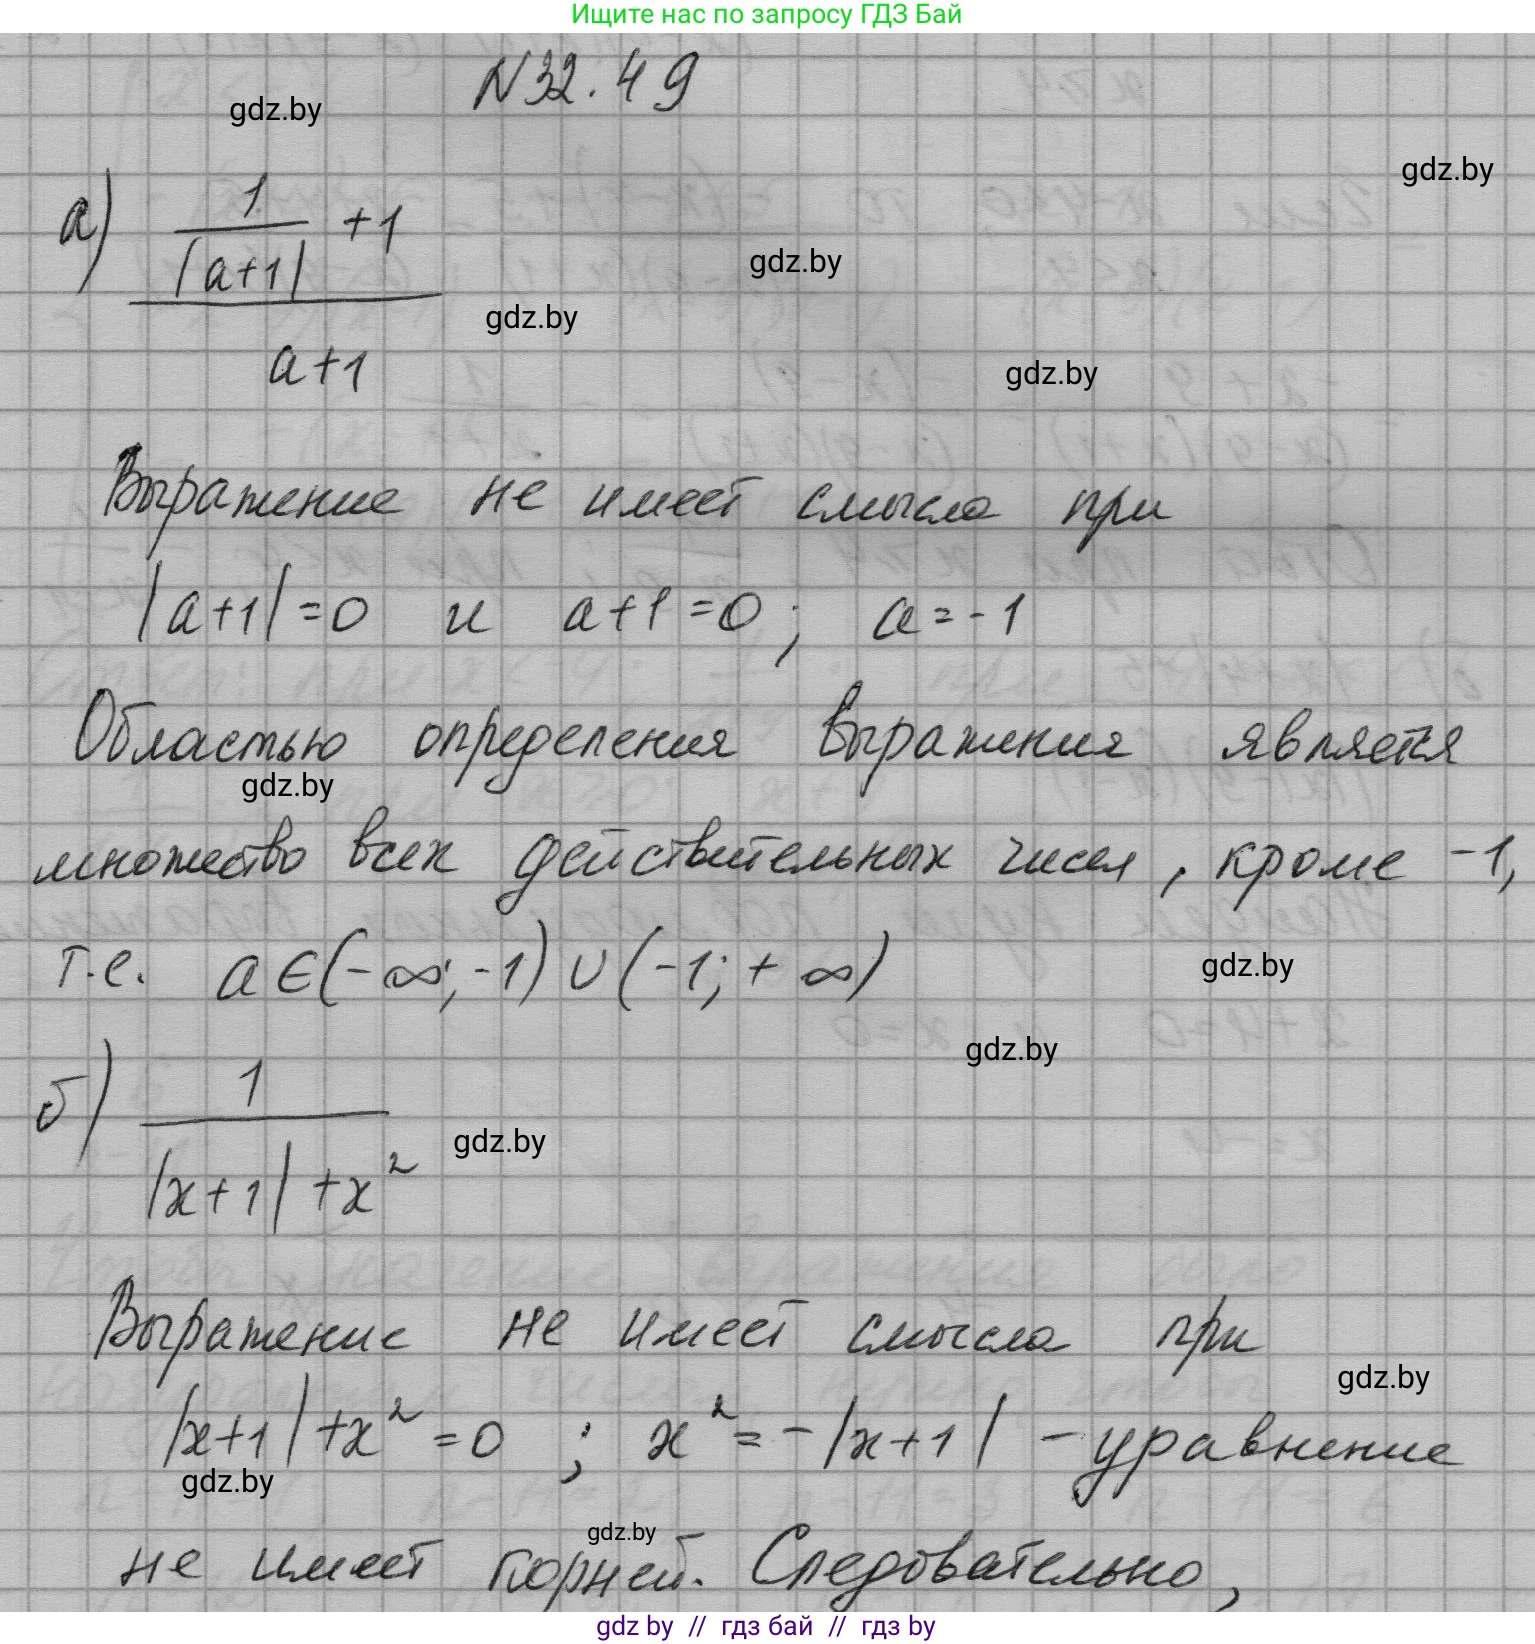 Ищите нас по запросу ГДЗ Бай
N32.49
gdz.by
gdz.by
а) (1/|a+1| + 1)/(a+1)
gdz.by
gdz.by
gdz.by
Выражение не имеет смысла при
|a+1|=0 и a+1=0; a=-1
Областью определения выражения является
gdz.by
множество всех действительных чисел, кроме -1,
т.е. a∈(-∞;-1)∪(-1;+∞)
gdz.by
gdz.by
б) 1/(|x+1|+x²)
gdz.by
Выражение не имеет смысла при
gdz.by
|x+1|+x²=0; x²=-|x+1| - уравнение
gdz.by
gdz.by
не имеет корней. Следовательно,
gdz by // гдз бай // гдз by